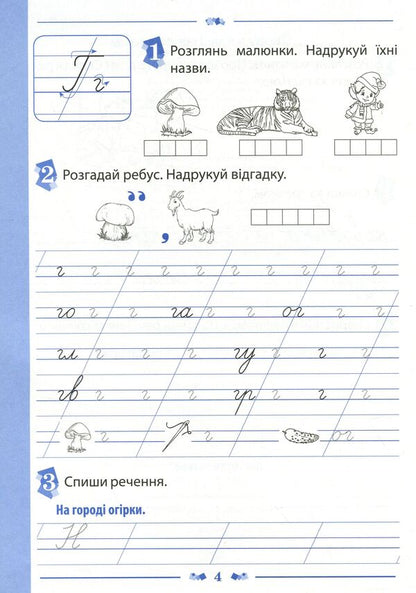 Г г
1 Розглянь малюнки. Надрукуй їхні
назви.
2 Розгадай ребус. Надрукуй відгадку.
„
,
г г г г г г г г г г г г
го г г га г г ог г г
гл г г гу г г г
гв г г гр г г г
г г ог
3 Спиши речення.
На городі огірки.
Н
4